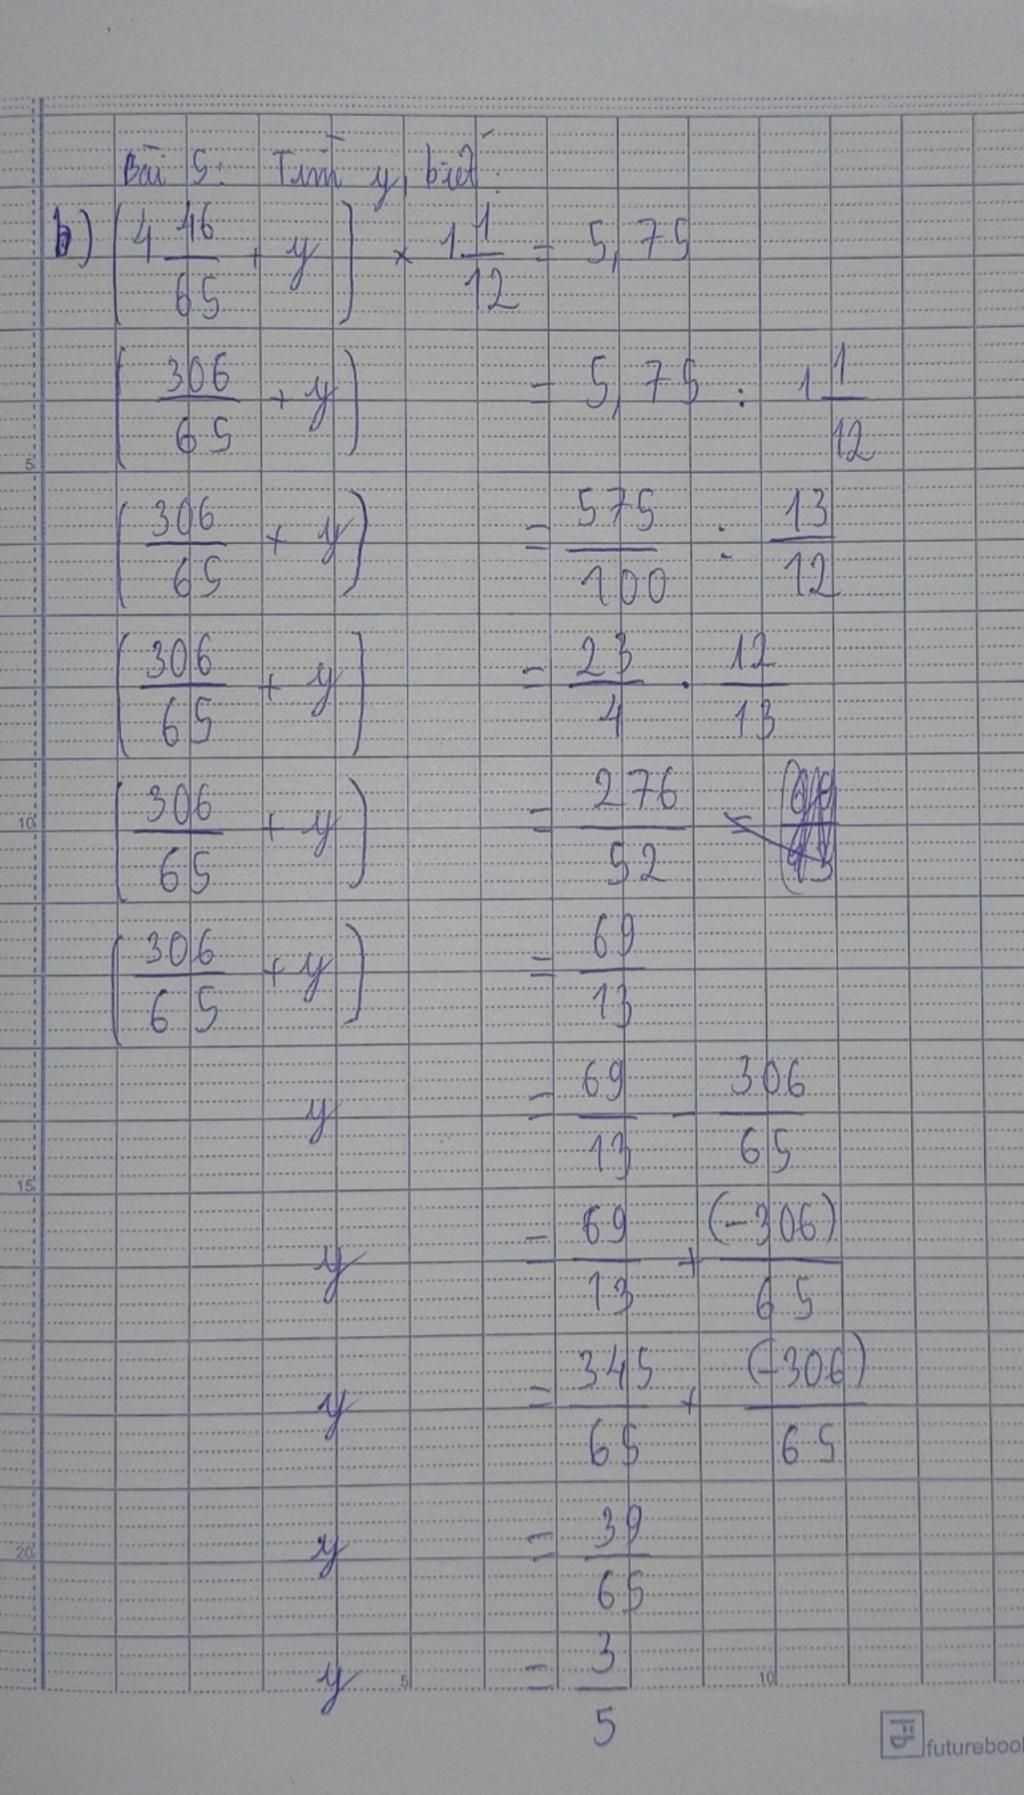 Bài 5: Tìm y, biết:
b) (4 46/65 + y) × 1 1/12 = 5,75
(306/65 + y) = 5,75 : 1 1/12
(306/65 + y) = 575/100 : 13/12
(306/65 + y) = 23/4 . 12/13
(306/65 + y) = 276/52
(306/65 + y) = 69/13
y = 69/13 - 306/65
y = 69/13 + (-306)/65
y = 345/65 + (-306)/65
y = 39/65
y = 3/5
5
10
15
20
5
10
futurebook